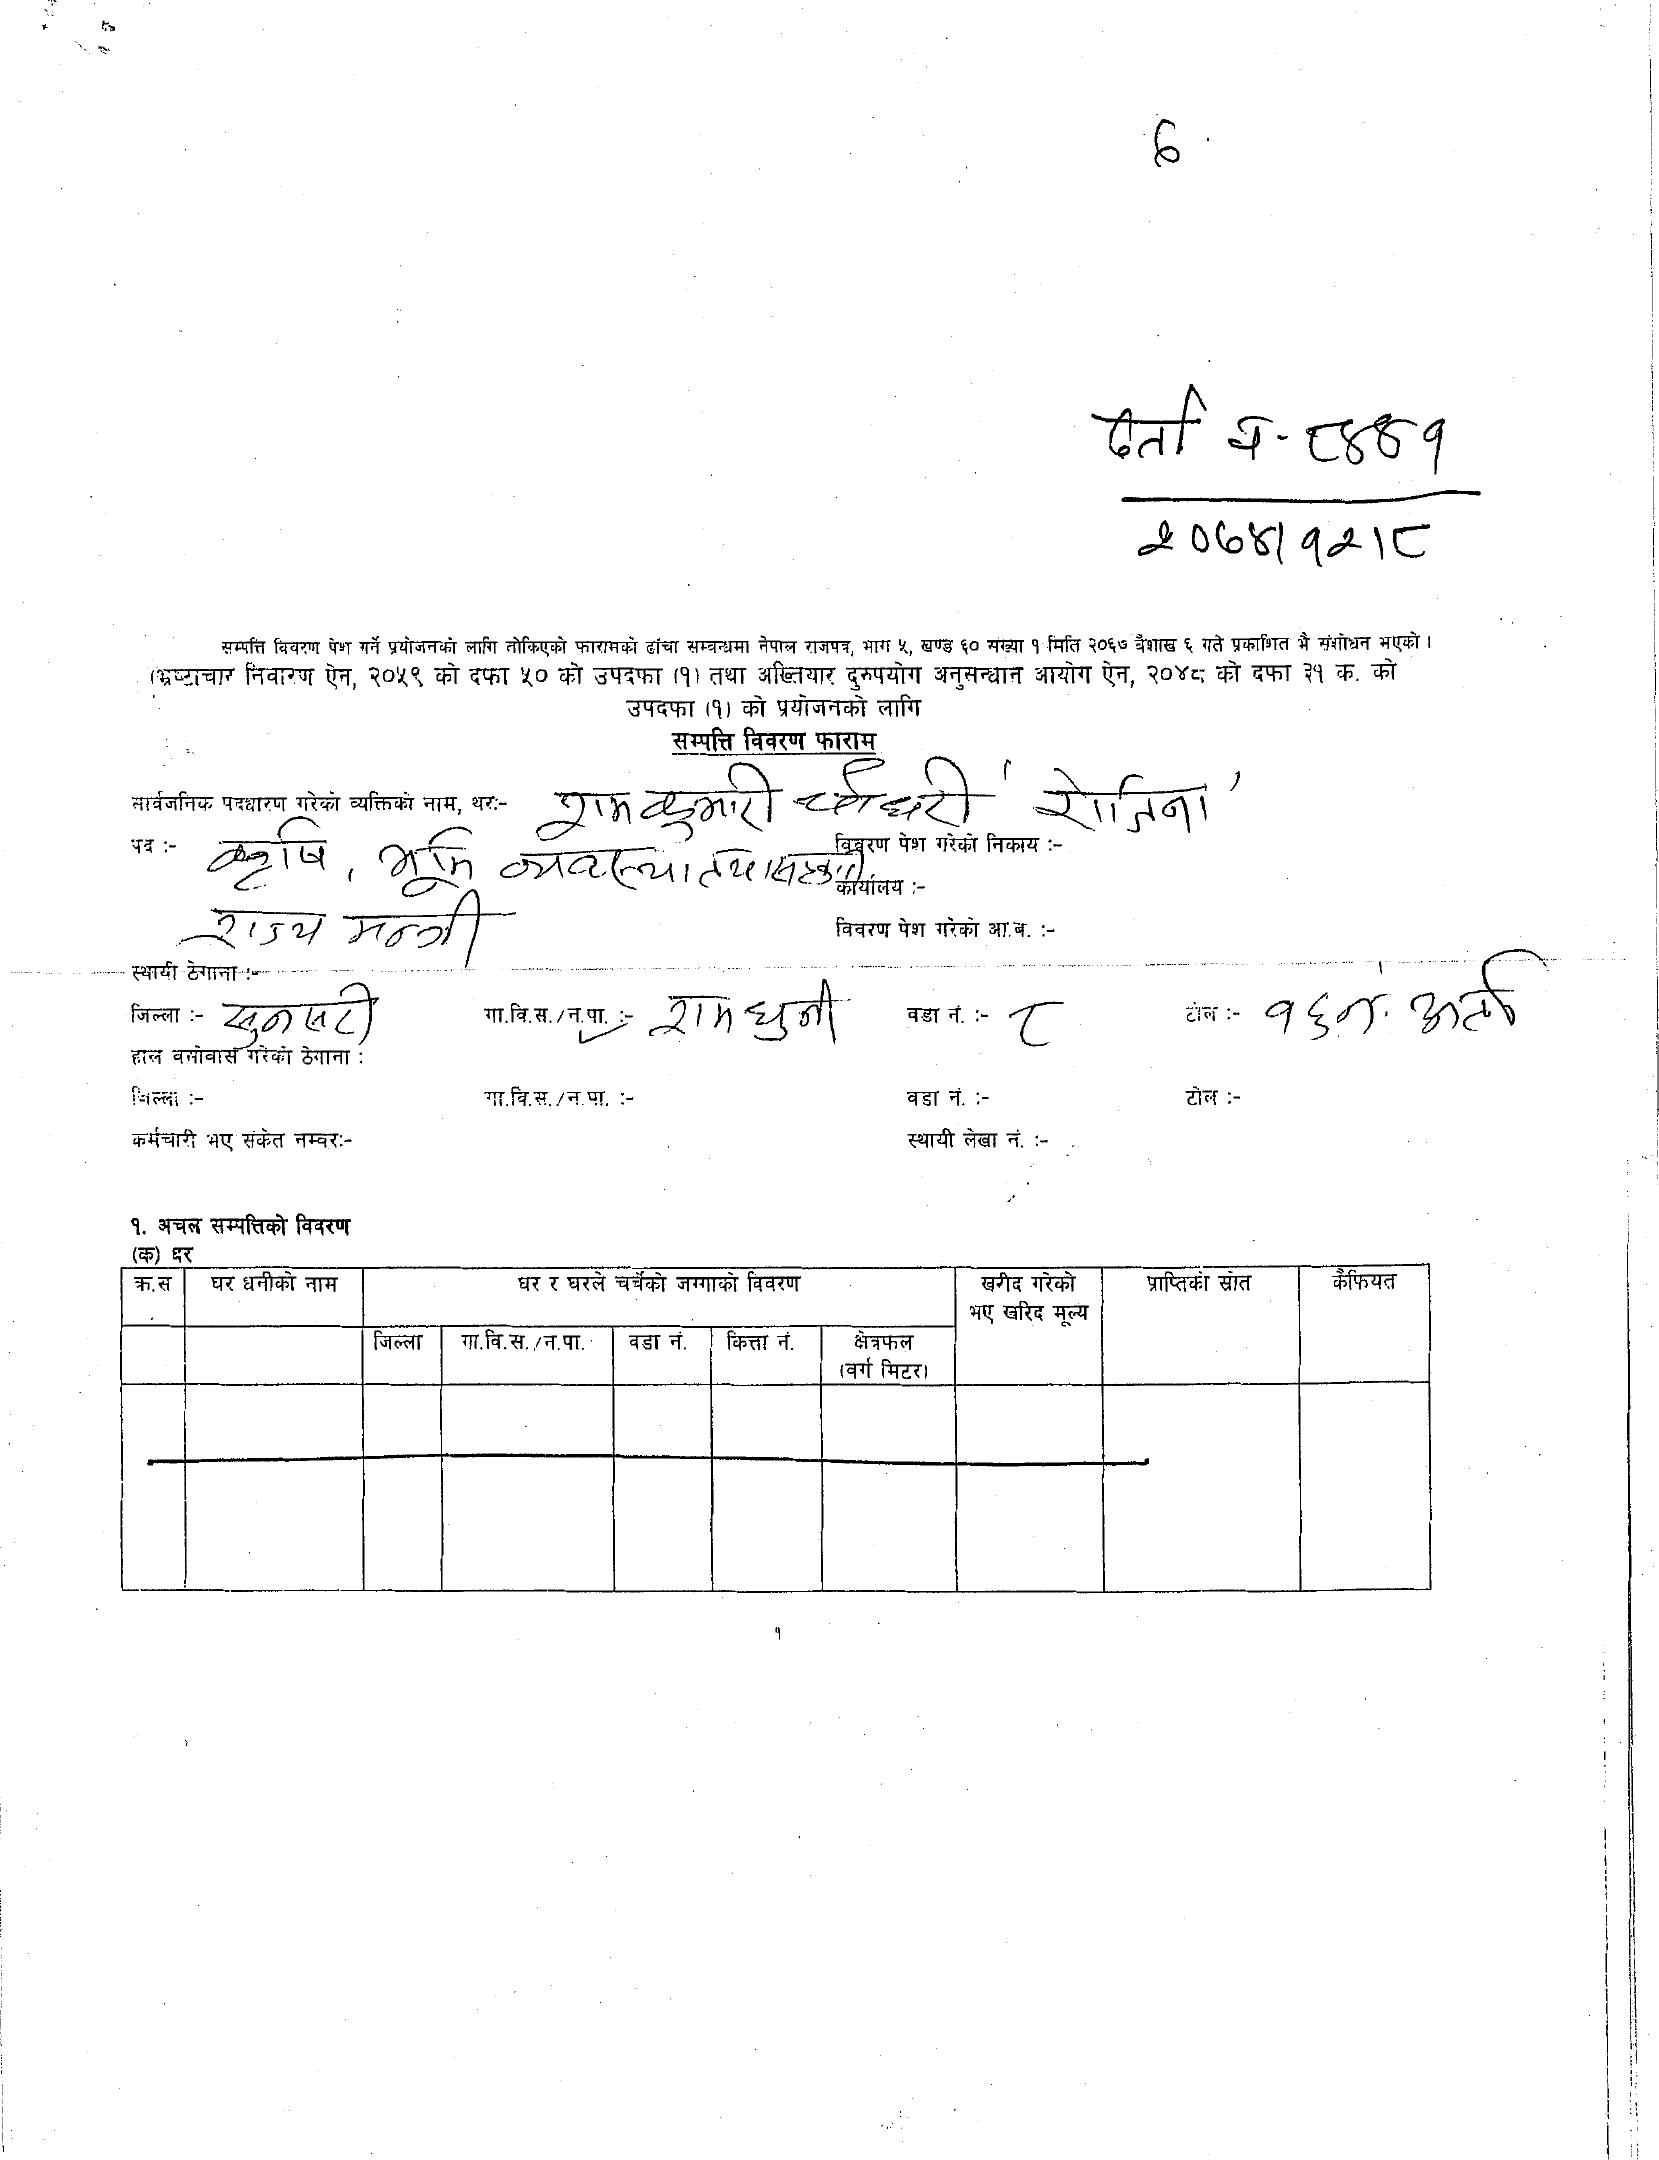 ६
दर्ता नं - ८४४१
२०७४।१२।८
सम्पत्ति विवरण पेश गर्ने प्रयोजनको लागि तोकिएको फारामको ढांचा सम्वन्धमा नेपाल राजपत्र, भाग ५, खण्ड ६० संख्या १ मिति २०६७ वैशाख ६ गते प्रकाशित भै संशोधन भएको ।
(भ्रष्टाचार निवारण ऐन, २०५९ को दफा ५० को उपदफा (१) तथा अख्तियार दुरुपयोग अनुसन्धान आयोग ऐन, २०४८ को दफा ३१ क. को
उपदफा (१) को प्रयोजनको लागि
सम्पत्ति विवरण फाराम
सार्वजनिक पदधारण गरेको व्यक्तिको नाम, थर:- रामकुमारी चौधरी
पद :- कृषि, भूमि व्यवस्था तथा सहकारी विवरण पेश गरेको निकाय :-
कार्यालय :-
राज्य मन्त्री विवरण पेश गरेको आ.ब. :-
स्थायी ठेगाना :-
जिल्ला :- सुनसरी गा.वि.स./न.पा. :- रामधुनी वडा नं. :- ८ टोल :- १६ नं.
हाल वसोवास गरेको ठेगाना :
जिल्ला :- गा.वि.स./न.पा. :- वडा नं. :- टोल :-
कर्मचारी भए संकेत नम्वर:- स्थायी लेखा नं. :-
१. अचल सम्पत्तिको विवरण
(क) घर
क्र.स घर धनीको नाम घर र घरले चर्चेको जग्गाको विवरण खरीद गरेको प्राप्तिको स्रोत कैफियत
भए खरिद मूल्य
जिल्ला गा.वि.स./न.पा. वडा नं. कित्ता नं. क्षेत्रफल
(वर्ग मिटर)
१